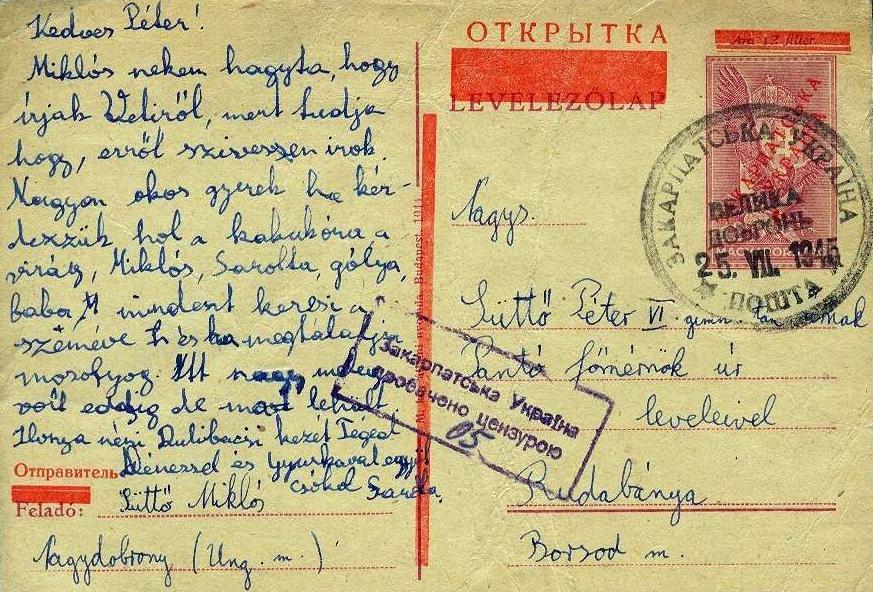 Kedves Péter!
Miklós nekem hagyta, hogy
írjak Veliről, mert tudja
hogy, erről szivessen irok.
Nagyon okos gyerek ha kér-
dezzük hol a kakukóra a
virág, Miklós, Sarolta, gólya,
baba mindent keresi a
szemével és ha megtalálja
mosolyog. Itt nagy meleg
volt eddig de most lehült.
Ilonza néni kezét Téged
Dénessel és Gyurkával együtt
csókol Sarolta.
Отправитель
Feladó: Süttő Miklós
Nagydobrony (Ung. m.)
ОТКРЫТКА
LEVELEZŐLAP
Ára 12 fillér.
ЗАКАРПАТСЬКА УКРАЇНА
ВЕЛИКА
ДОБРОНЬ
25. VII. 1945
ПОШТА
Nagys.
Süttő Péter VI. gimn. tan. úrnak
Pantó főmérnök úr
leveleivel
Закарпатська Україна
пробачено цензурою
05
Rudabánya
Borsod m.
Budapest. 1941